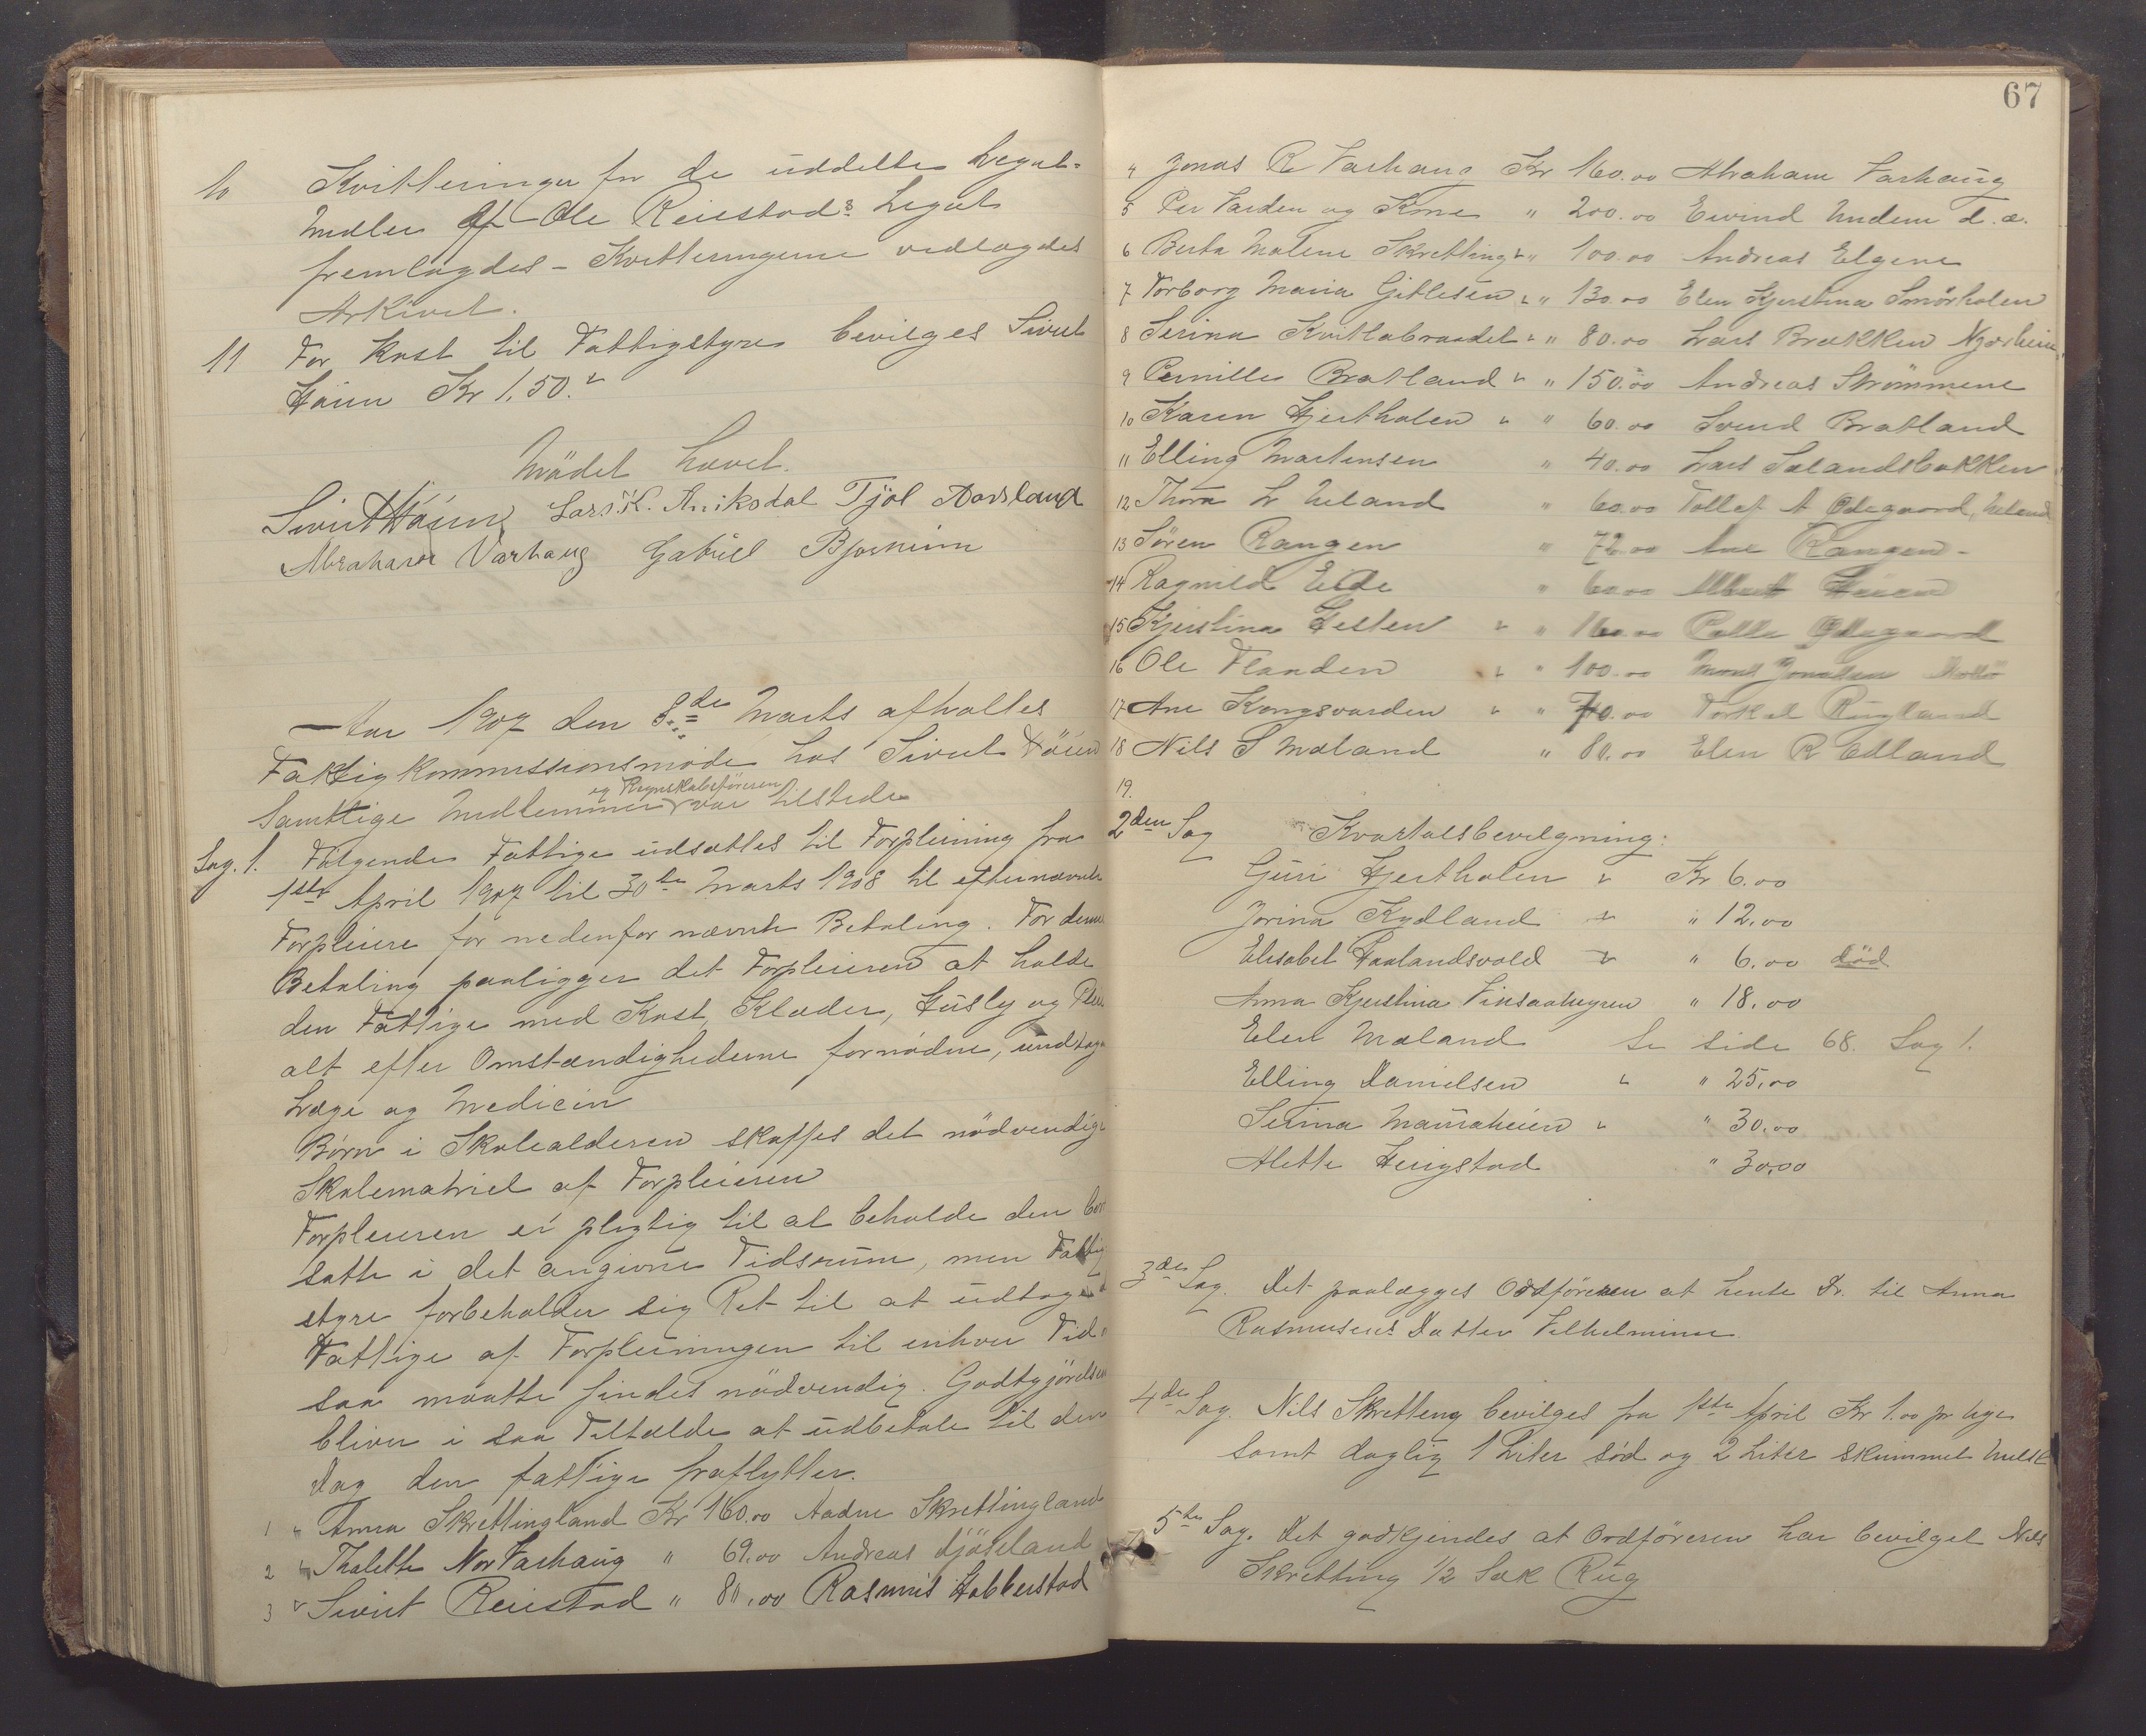 10 Kvitteringer for de uddelte Legat-
midler af Ole Reiestads Legat
fremlagdes - Kvitteringerne vedlagdes
Arkivet.
11 For Kost til Fattigstyre bevilges Sivert
Höien Kr 1,50.
Mödet hævet.
Sivert Höien Lars K. Aniksdal Tjöl Aarsland
Abraham Varhaug Gabriel Bjorheim
Aar 1907 den 8de Marts afholtes
Fattigkommissionsmöde hos Sivert Höien
og Regnskabsföreren
Samttige Medlemmer var tilstede
Sag. 1. Fölgende Fattige udsættes til Forpleining fra
1ste April 1907 til 30te Marts 1908 til efternævnte
Forpleiere for nedenfor nævnte Betaling. For denne
Betaling paaligger det Forpleieren at holde
den Fattige med Kost, Klæder, Husly og
alt efter Omstændighederne fornödne, undtagen
Læge og Medicin
Börn i Skolealderen skaffes det nödvendige
Skolematriel af Forpleieren
Forpleieren er pligtig til at beholde den bort
satte i det angivne Tidsrum, men Fattig
styre forbeholder sig Ret til at udtage
Fattige af Forpleiningen til enhver Tid
saa maatte findes nödvendig. Godtgjörelsen
bliver i saa Tilfælde at udbetale til den
Dag den fattige fraflytter.
1 " Anna Skrettingland Kr 160.00 Aadne Skrettingland
2 " Thalette Nor Varhaug " 69.00 Andreas Njöseland
3 Sivert Reiestad " 80,00 Rasmus Habberstad
67
4 Jonas R Varhaug Kr 160.00 Abraham Varhaug
5 Per Varden og Kone " 200.00 Eivind Undem d.æ.
6 Berta Malene Skretting " 100.00 Andreas Elgene
7 Torborg Maria Gitlesen " 130.00 Elen Kjerstina Smörholen
8 Serina Kvittabraadet " 80.00 Lars Brækken Nærheim
9 Pernille Bratland " 150.00 Andreas Strömmene
10 Karen Hjertholen " 60.00 Svend Bratland
11 Elling Martensen " 40.00 Lars Sælandsbakken
12 Thora L Ueland " 60.00 Tollef A Ödegaard, Ueland
13 Sören Rangen " 72.00 Ane Rangen -
14 Ragnild Eide " 60.00
15 Kjerstina Hesten " 160.00 Ödegaard
16 Ole Flanden " 100.00 Jonassen
17 Ane Kongsvarden " 70.00 Torkel Rugland
18 Nils S Mæland " 80,00 Elen R Edland
19.
2den Sag Kvartalsbevilgning:
Guri Hjertholen Kr 6.00
Jorina Kydland " 12,00
Elisabet Haalandsvold " 6,00 död
Anna Kjerstina Vinsaaheyren " 18,00
Elen Mæland Se side 68. Sag 1.
Elling Danielsen " 25,00
Serina Mauraheien " 30,00
Alette Herigstad " 30,00
3de Sag. Det paalægges Ordföreren at hente Dr. til Anna
Rasmusens Datter Vilhelmine
4de Sag. Nils Skretting bevilges fra 1ste April Kr 1.00 pr Uge
samt daglig 1 Liter söd og 2 Liter skummet Melk
5te Sag. Det godkjendes at Ordföreren har bevilget Nils
Skretting 1/2 Sæk Rug